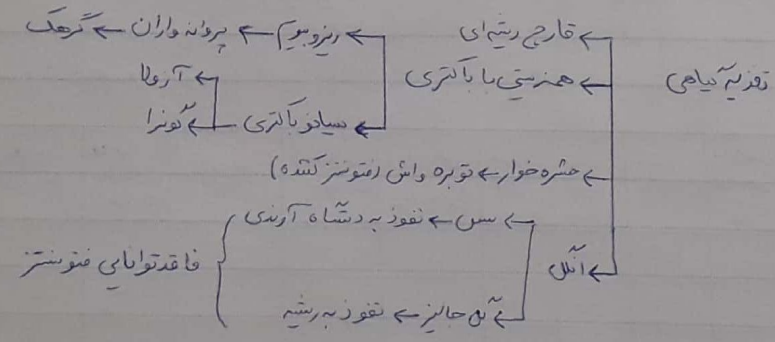 قارچ ریشه‌ای
تغذیه گیاهی
همزیستی با باکتری
ریزوبیوم ← پروانه واران ← گرهک
سیانوباکتری
آزولا
گونرا
حشره خوار ← توبره واش (فتوسنتز کننده)
انگل
سس ← نفوذ به دستگاه آوندی
گل جالیز ← نفوذ به ریشه
فاقد توانایی فتوسنتز